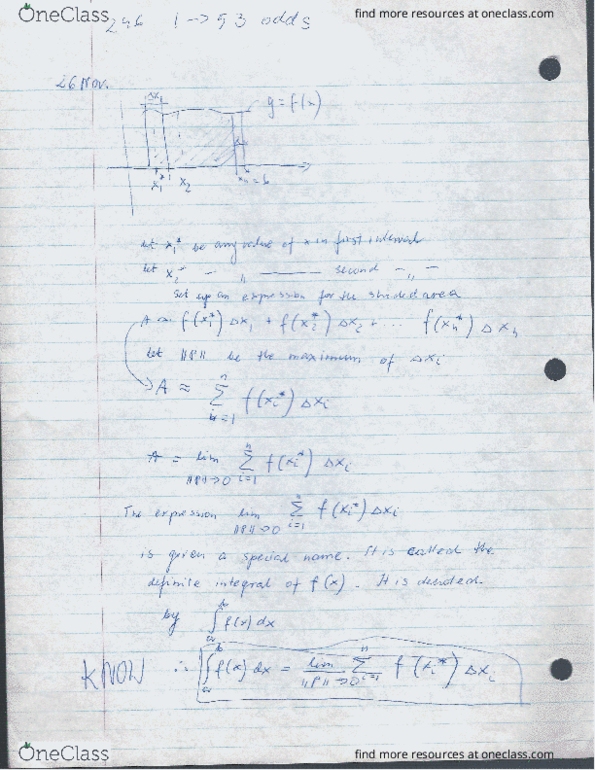 OneClass
find more resources at oneclass.com
246 1->53 odds
26 Nov.
Δx
y = f(x)
x₁* x₂ xₙ = b
let x₁* be any value of x in first interval
let x₂* - " —— second - " -
Set up an expression for the shaded area
A ≈ f(x₁*) Δx₁ + f(x₂*) Δx₂ + ... f(xₙ*) Δxₙ
let ||P|| be the maximum of Δxᵢ
A ≈ ∑ᵢ₌₁ⁿ f(xᵢ*) Δxᵢ
A = lim ||P||→0 ∑ᵢ₌₁ⁿ f(xᵢ*) Δxᵢ
The expression lim ||P||→0 ∑ᵢ₌₁ⁿ f(xᵢ*) Δxᵢ
is given a special name. It is called the
definite integral of f(x). It is denoted.
by ∫ₐᵇ f(x) dx
KNOW ∴ ∫ₐᵇ f(x) dx = lim ||P||→0 ∑ᵢ₌₁ⁿ f(xᵢ*) Δxᵢ
OneClass
find more resources at oneclass.com